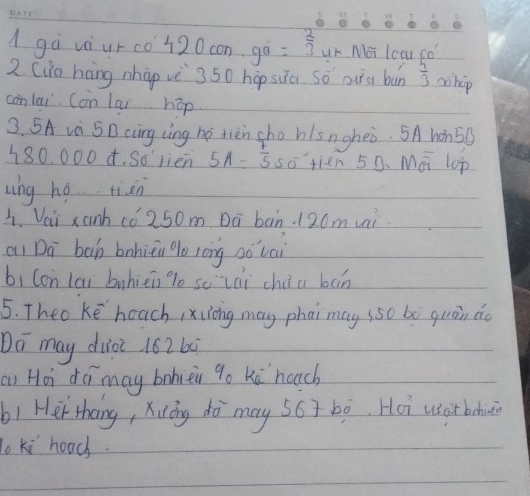 1 gà và vịt có 420 con. gà = 2/3 vịt. Mỗi loại có
2. Cửa hàng nhập về 350 hộp sữa. Số sữa bán 4/3 số hộp
còn lại. Còn lại... hộp.
3. 5A và 5B cùng ủng hộ tiền cho h/s nghèo. 5A hơn 5B
480.000 đ. Số tiền 5A = 7/5 số tiền 5B. Mỗi lớp
ủng hộ... tiền
4. Vải xanh có 250m. Đã bán 120m vải
a) Đã bán bnhiêu % tổng số vải
b) Còn lại bnhiêu % số vải chưa bán
5. Theo kế hoạch, xưởng may phải may 350 bộ quần áo
Đã may được 162 bộ
a) Hỏi đã may bnhiêu % kế hoạch
b) Hết tháng, xưởng đã may 567 bộ. Hỏi vượt bnhiêu
% kế hoạch.